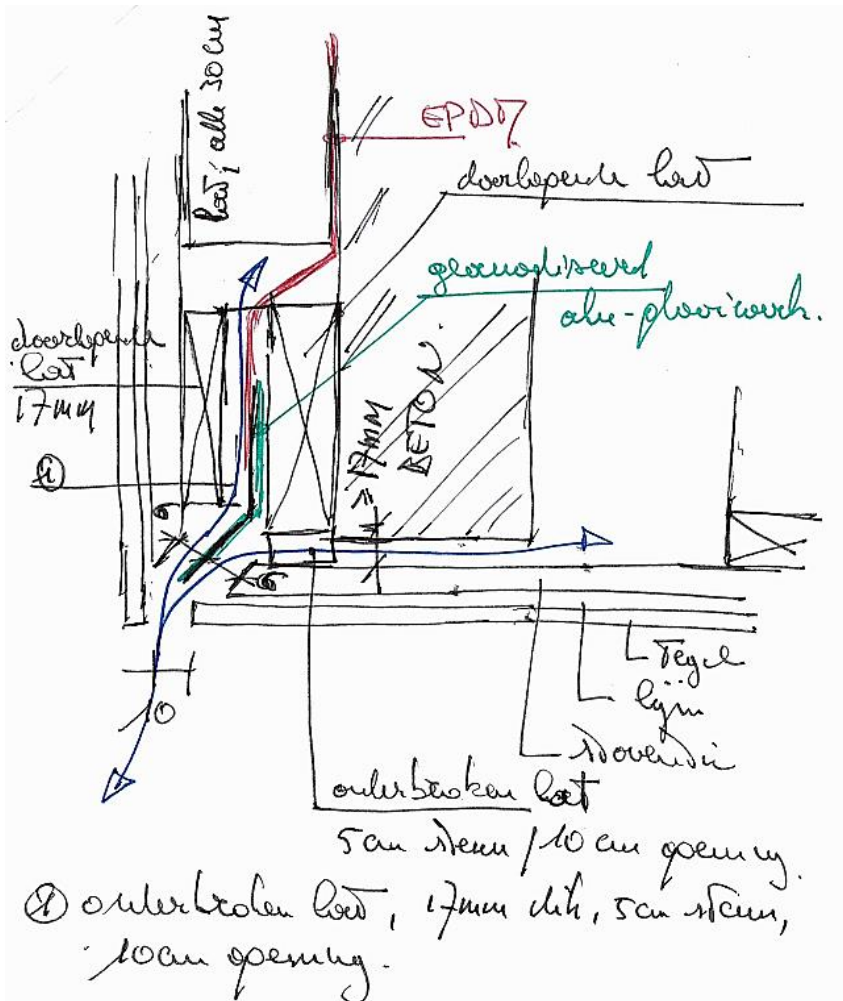 lat, alle 30 cm
EPDM
doorlopende lat
geanodiseerd
alu-plooiwerk.
doorlopende
lat
17mm
①
≥ 17mm
BETON.
6
6
10
Tegel
lijm
stoventec
onderbroken lat
5cm steun / 10 cm opening.
① onderbroken lat, 17mm dik, 5cm steun,
10cm opening.